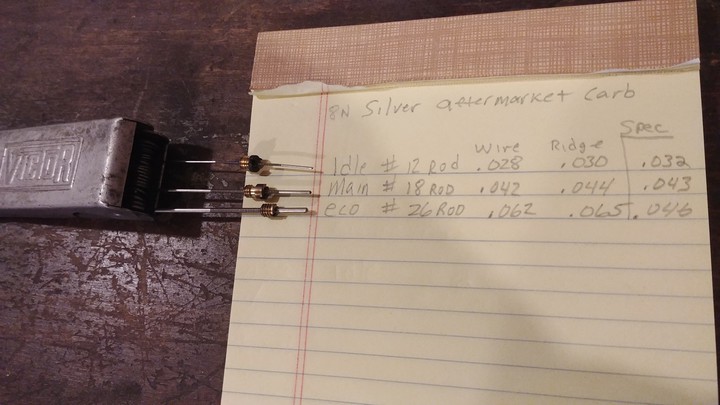 VICTOR
8N Silver aftermarket Carb
Wire Ridge Spec
Idle # 12 Rod .028 .030 .032
Main # 18 ROD .042 .044 .043
eco # 26 ROD .062 .065 .046